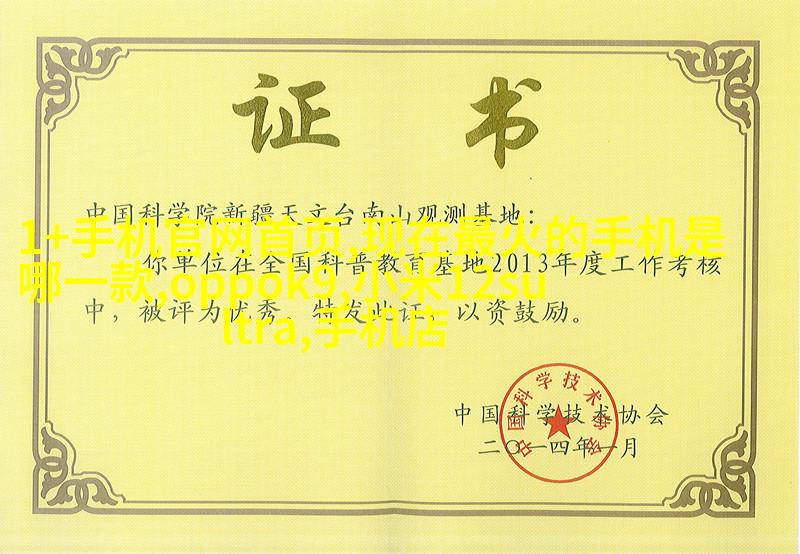 证书
中国科学院新疆天文台南山观测基地:
你单位在全国科普教育基地2013年度工作考核
中，被评为优秀。特发此证，以资鼓励。
1+手机官网首页,现在最火的手机是
哪一款,oppok9,小米12su
ltra,手机店
中国科学技术协会
二〇一四年一月
中国科学技术协会